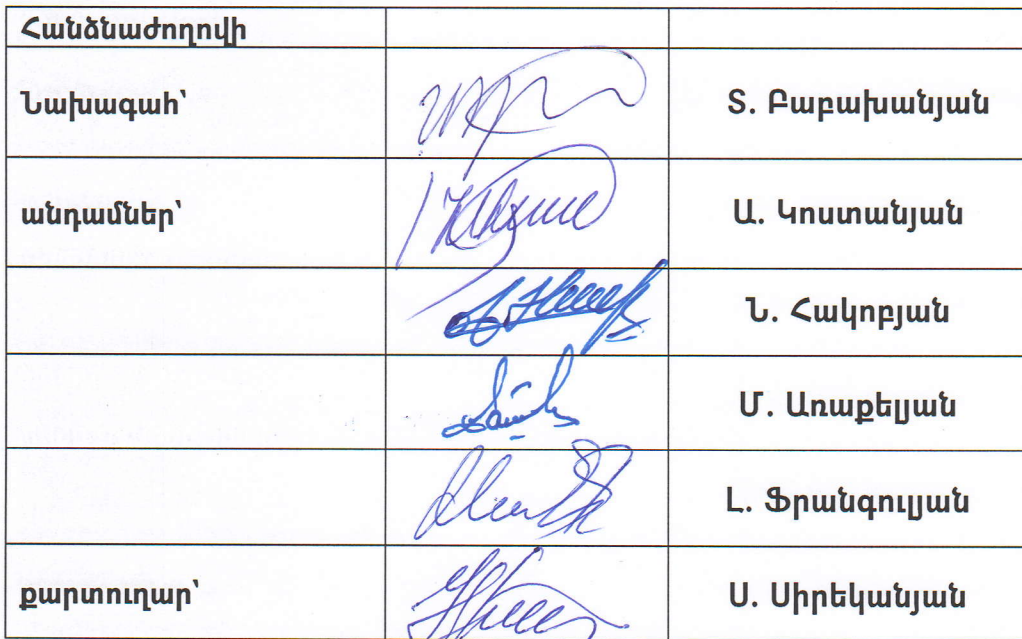 Հանձնաժողովի
Նախագահ՝ Տ. Բաբախանյան
անդամներ՝ Ա. Կոստանյան
Ն. Հակոբյան
Մ. Առաքելյան
Լ. Ֆրանգուլյան
քարտուղար՝ Ս. Սիրեկանյան